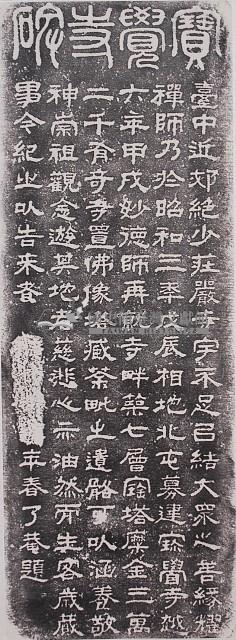 寶覺寺碑
臺中近郊絕少莊嚴寺宇不足㠯結大眾之善緣耀
禪師乃於昭和三季戊辰相地北屯募建寶覺寺迨
六年甲戌妙德師再就寺畔築七層寶塔縻金三萬
二千有奇寺置佛像塔藏荼毗之遺骼可以涵養敬
神崇祖觀念遊其地者慈悲心亦油然而生客歲蕆
事令紀之以告来者 年春了菴題